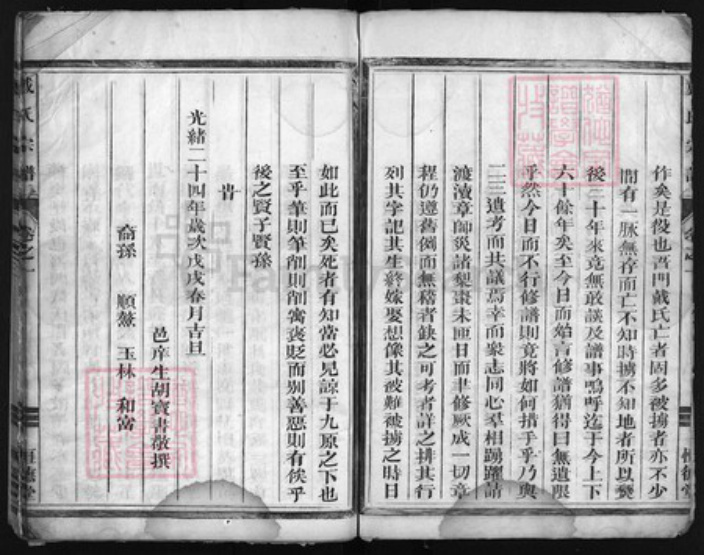 作矣是役也吾門戴氏亡者固多被擄者亦不少
間有一脉無存而亡不知時擄不知地者所以發
後三十年來竟無敢議及譜事嗚呼迄于今上下
六十餘年矣至今日而始言修譜猶得曰無遺限
乎然今日而不行修譜則竟將如何措手乎乃與
二三遺考而共議焉幸而衆志同心羣相踴躍請
渡瀆章師災諸梨棗未匝月而聿修厥成一切章
程仍遵舊例而無稽者缺之可考者詳之排其行
列其字記其生終嫁娶想像其被難被擄之時日
如此而已矣死者有知當必見諒于九原之下也
至乎筆則筆削則削寓褒貶而别善惡則有俟乎
後之賢子賢孫
旹
光緒二十四年歲次戊戌春月吉旦
邑庠生胡寶書敬撰
裔孫 順鰲 玉林 和富
戴氏宗譜 卷之一
恒德堂